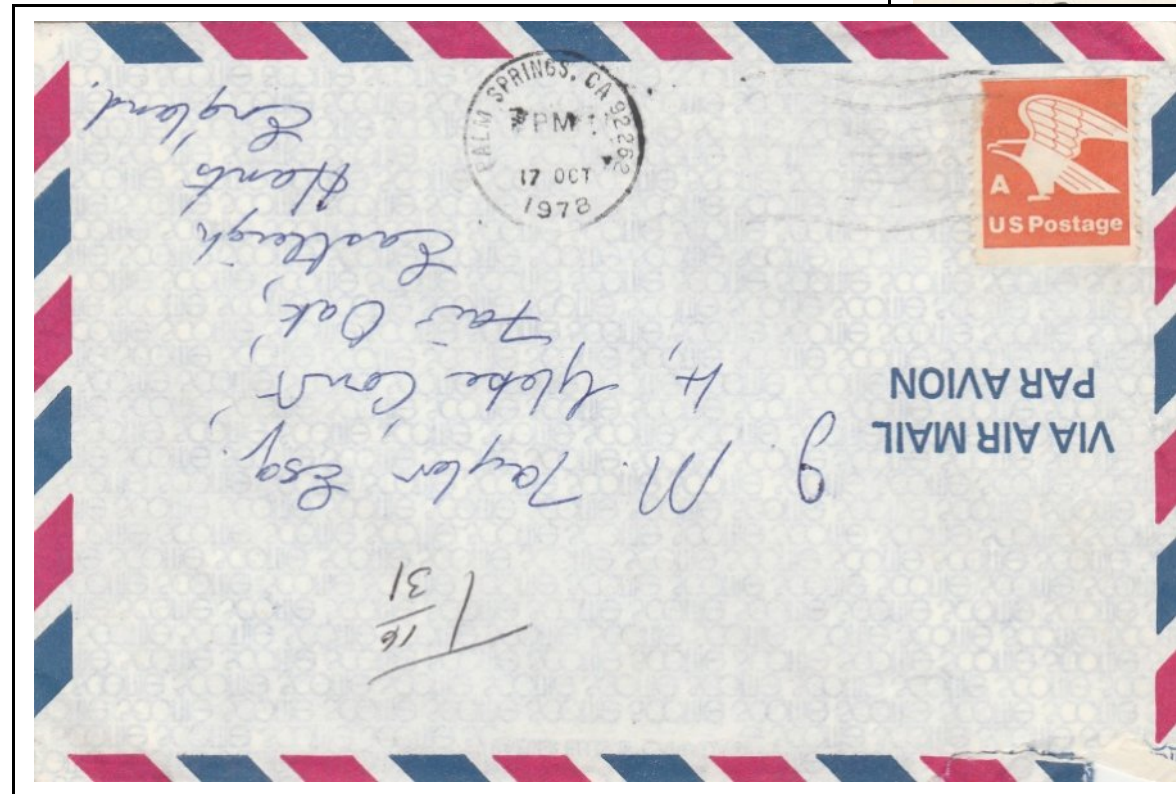 PALM SPRINGS, CA 92262
PM
17 OCT
1978
A
US Postage
VIA AIR MAIL
PAR AVION
T 16/31
J. M. Taylor Esq.,
4, Glebe Court,
Fair Oak,
Eastleigh
Hants
England.